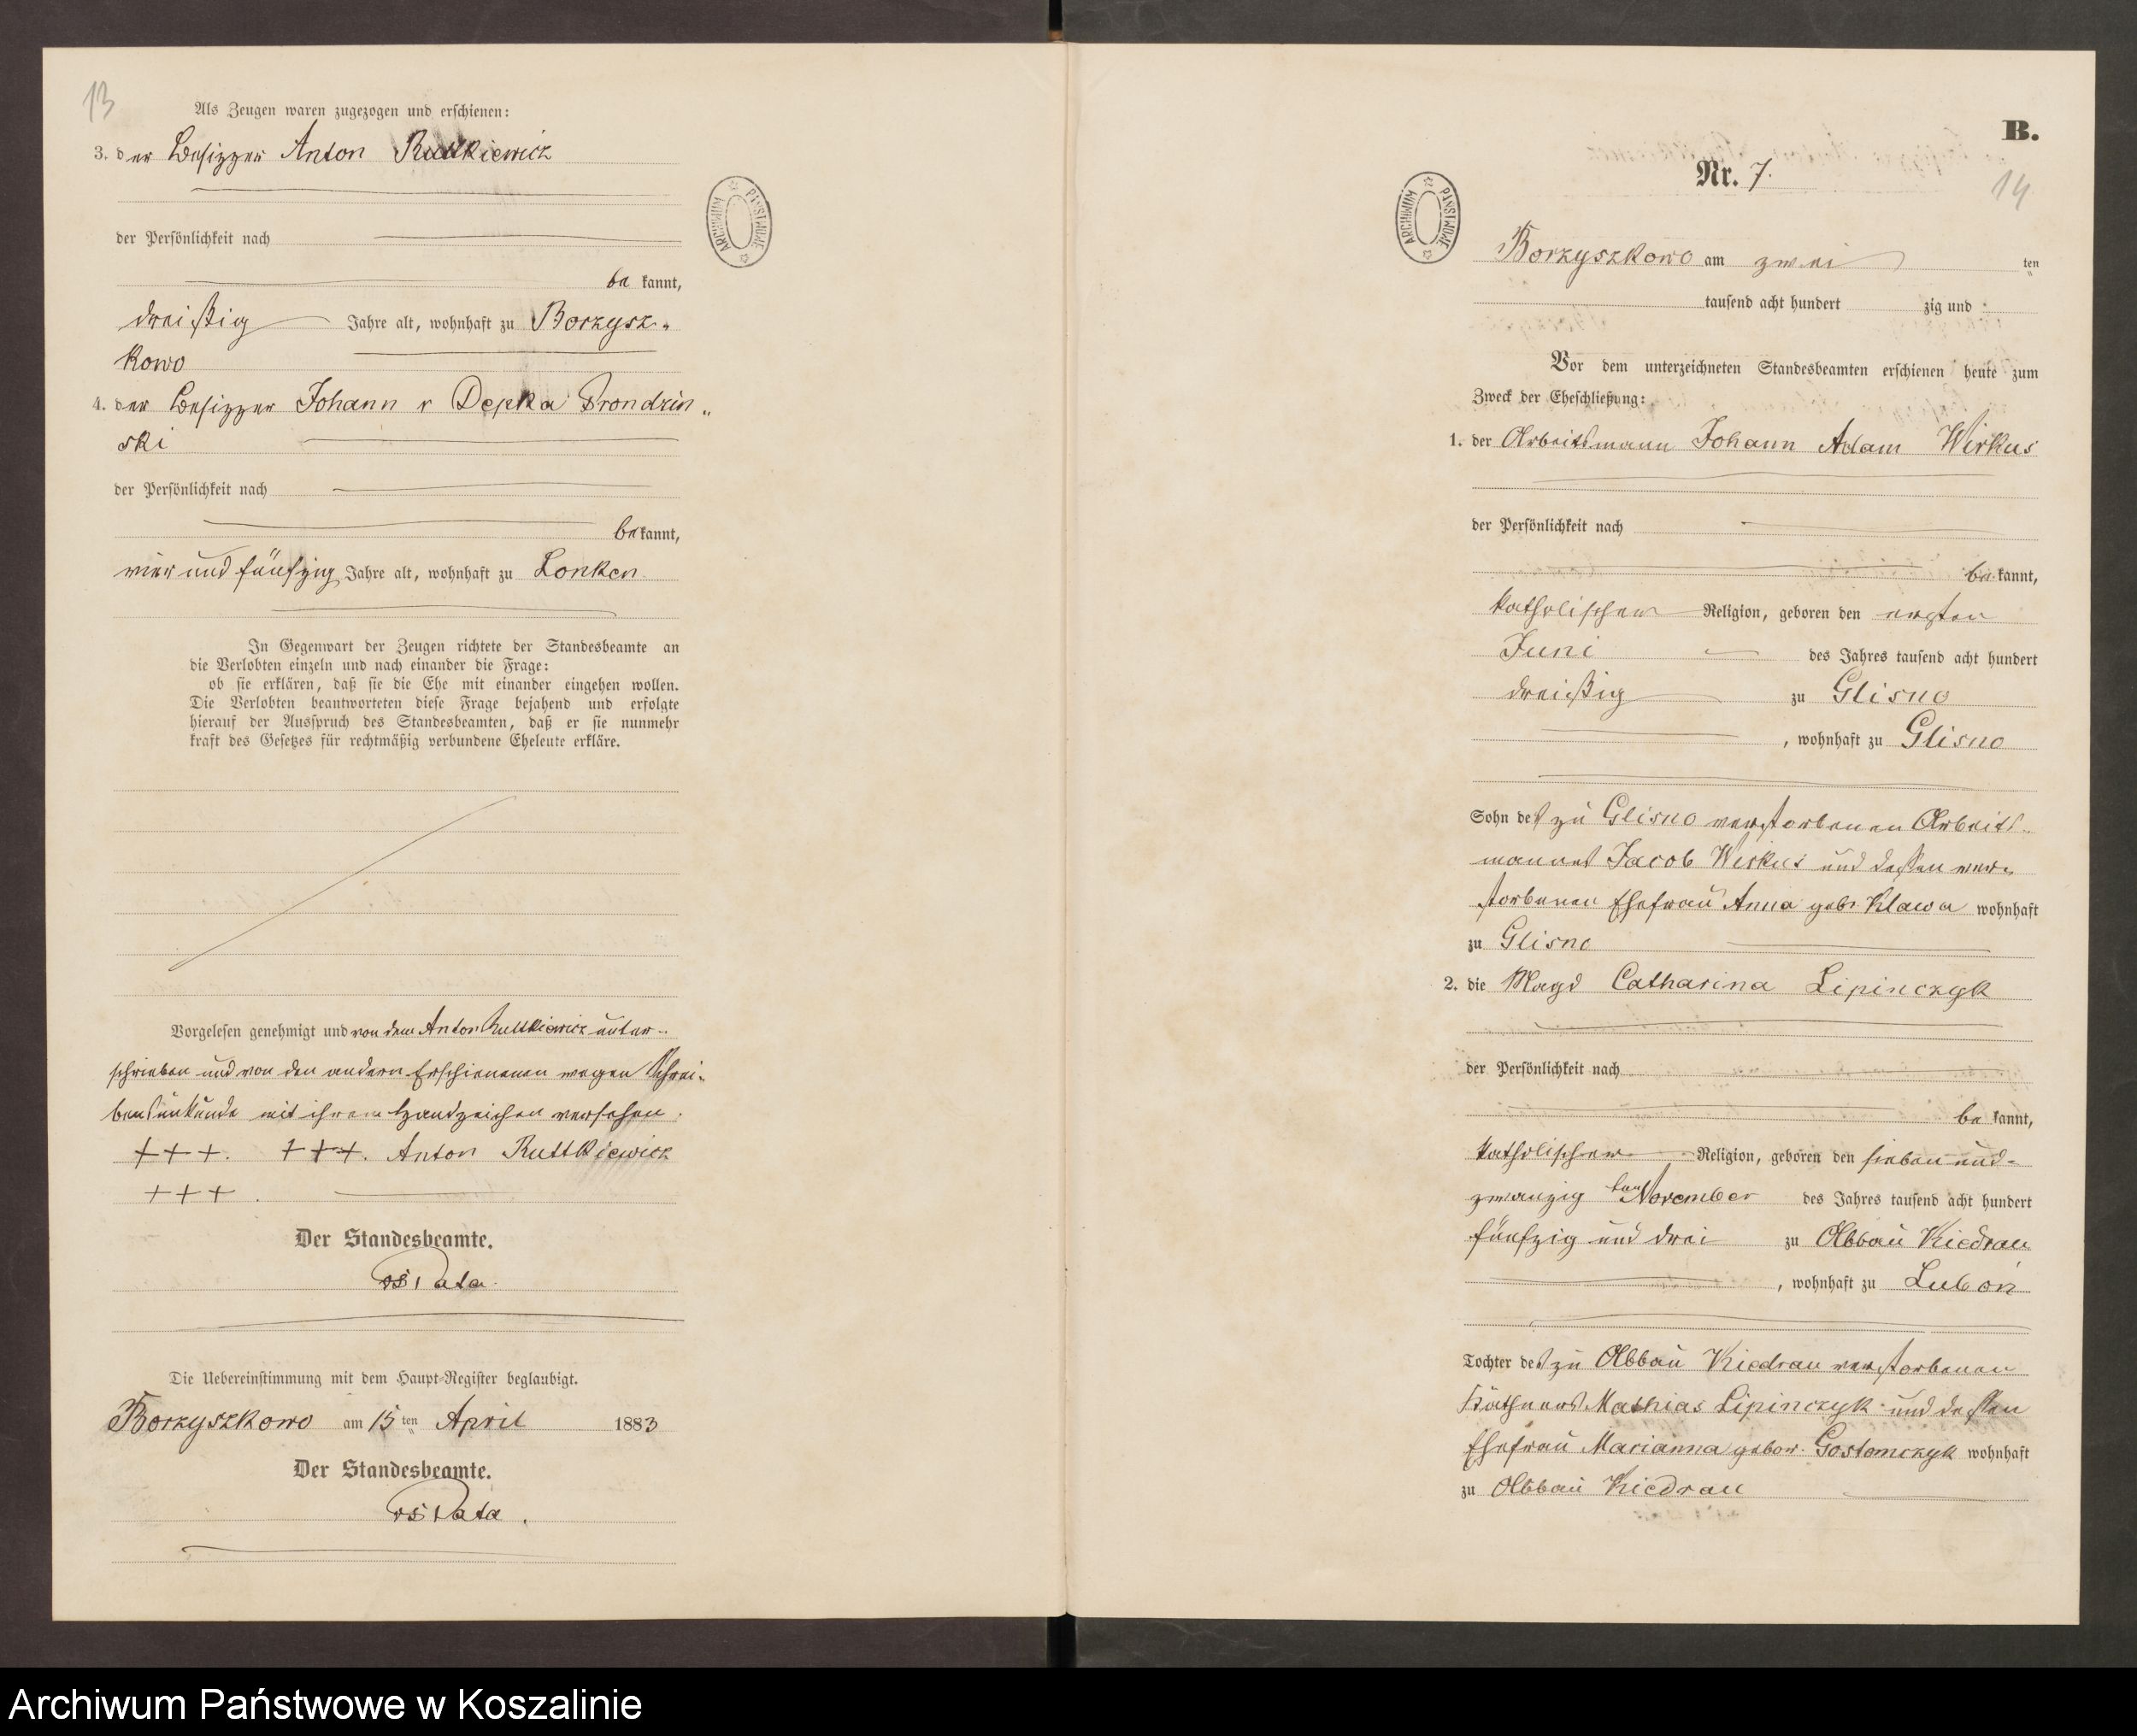 13
Als Zeugen waren zugezogen und erschienen:
3. der Besitzer Anton Ruttkiewicz
der Persönlichkeit nach
be kannt,
dreißig Jahre alt, wohnhaft zu Borzysz-
kowo
4. der Besitzer Johann v Depka Prondzin-
ski
der Persönlichkeit nach
be kannt,
vier und fünfzig Jahre alt, wohnhaft zu Lonken
In Gegenwart der Zeugen richtete der Standesbeamte an
die Verlobten einzeln und nach einander die Frage:
ob sie erklären, daß sie die Ehe mit einander eingehen wollen.
Die Verlobten beantworteten diese Frage bejahend und erfolgte
hierauf der Ausspruch des Standesbeamten, daß er sie nunmehr
kraft des Gesetzes für rechtmäßig verbundene Eheleute erkläre.
Vorgelesen genehmigt und von dem Anton Ruttkiewicz unter-
schrieben und von den andern Erschienenen wegen Schrei-
bensunkunde mit ihrem Handzeichen versehen.
+++. +++. Anton Ruttkiewicz
+++.
Der Standesbeamte.
Pata.
Die Uebereinstimmung mit dem Haupt-Register beglaubigt.
Borzyszkowo am 15ten April 1883
Der Standesbeamte.
Pata.
ARCHIWUM PAŃSTWOWE
B.
Nr. 7.
14
ARCHIWUM PAŃSTWOWE
Borzyszkowo am zwei ten
tausend acht hundert zig und
Vor dem unterzeichneten Standesbeamten erschienen heute zum
Zweck der Eheschließung:
1. der Arbeitsmann Johann Adam Wirkus
der Persönlichkeit nach
be kannt,
katholischer Religion, geboren den ersten
Juni des Jahres tausend acht hundert
dreißig zu Glisno
, wohnhaft zu Glisno
Sohn des zu Glisno verstorbenen Arbeits-
mannes Jacob Wirkus und dessen ver-
storbenen Ehefrau Anna geb. Klawa wohnhaft
zu Glisno
2. die Magd Catharina Lipinczyk
der Persönlichkeit nach
be kannt,
katholischer Religion, geboren den sieben und-
zwanzig ten November des Jahres tausend acht hundert
fünfzig und drei zu Abbau Kiedrau
, wohnhaft zu Luboń
Tochter des zu Abbau Kiedrau verstorbenen
Käthners Mathias Lipinczyk und dessen
Ehefrau Marianna gebor. Gostomczyk wohnhaft
zu Abbau Kiedrau
Archiwum Państwowe w Koszalinie